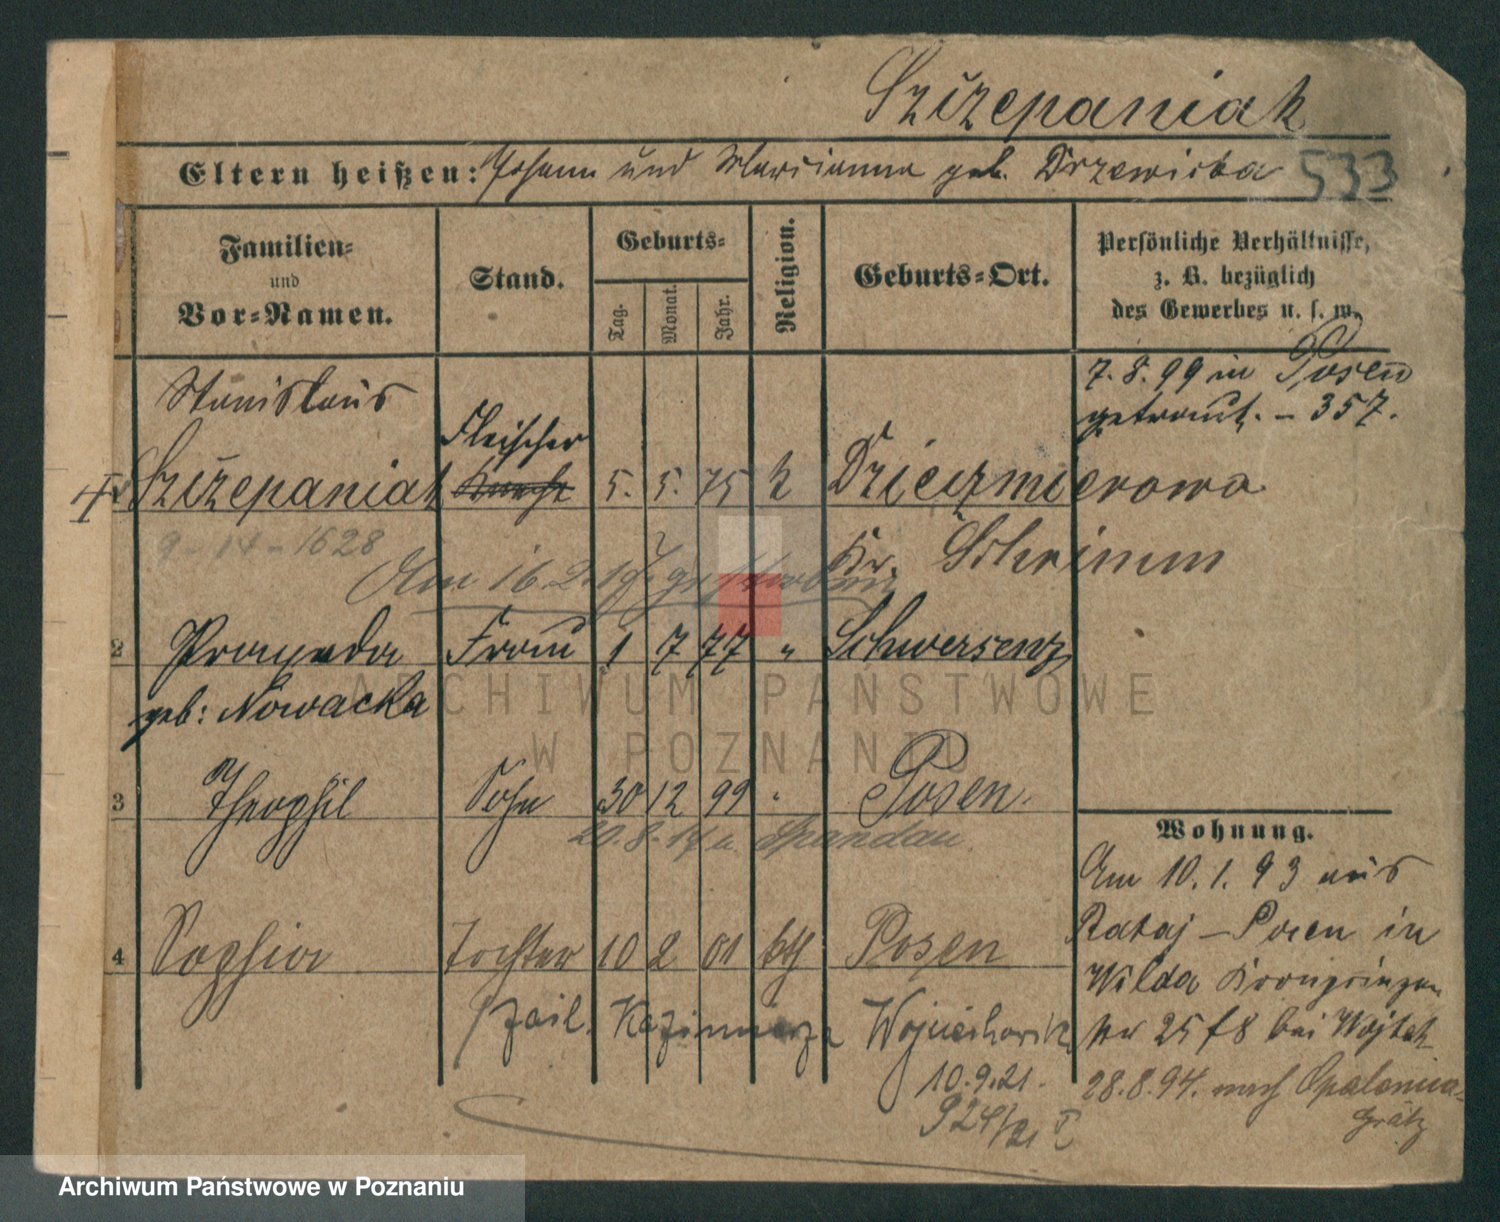 Szczepaniak
Eltern heißen: Johann und Marianna geb. Drzewicka 533
Familien- und Vor-Namen.
Stand.
Geburts-
Tag.
Monat.
Jahr.
Religion.
Geburts-Ort.
Persönliche Verhältnisse,
z. B. bezüglich
des Gewerbes u. s. w.
Stanislaus
Szczepaniak
Fleischer
5. 5. 75 k
Dzieczmierowo
Kr. Schrimm
7. 8. 99 in Posen
getraut. - 357.
9-14-1628
Am 16.2. gestorben
2 Praxeda Frau 1 7 77 " Schwersenz
geb: Nowacka
3 Theophil Sohn 30 12 99 " Posen.
20.8.17 n. Spandau
4 Sophia Tochter 10 2 01 kth Posen
Kazimierza
10.9.21.
924/21 I
Wohnung.
Am 10.1.93 aus
Rataj - Posen in
Wilda Kronprinzen
28.8.94. nach Opalenica-
Grätz
ARCHIWUM PAŃSTWOWE
W POZNANIU
Archiwum Państwowe w Poznaniu